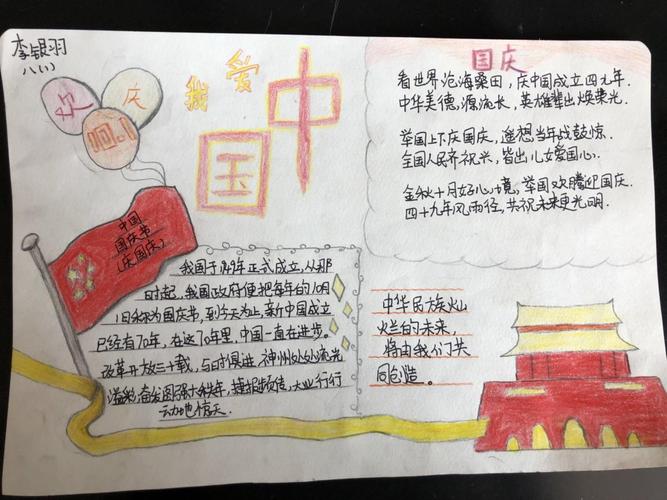 李银羽
八(1)
欢
庆
我爱
中
国
国庆
看世界沧海桑田，庆中国成立四九年．
中华美德源流长，英雄辈出焕荣光．
举国上下庆国庆，遥想当年战鼓惊．
全国人民齐祝兴，皆出儿女爱国心．
金秋十月好心境，举国欢腾迎国庆．
四十九年风雨径，共祝未来更光明．
中国
国庆节
(庆国庆)
我国于1949年正式成立，从那
时起，我国政府便把每年的10月
1日称为国庆节，到今天为止，新中国成立
已经有70年，在这70年里，中国一直在进步。
改革开放三十载，与时俱进 神州处处流光
溢彩，奋发图强十秋年，捷报频传，大业行行
动地惊天．
中华民族灿
烂的未来，
将由我们共
同创造。